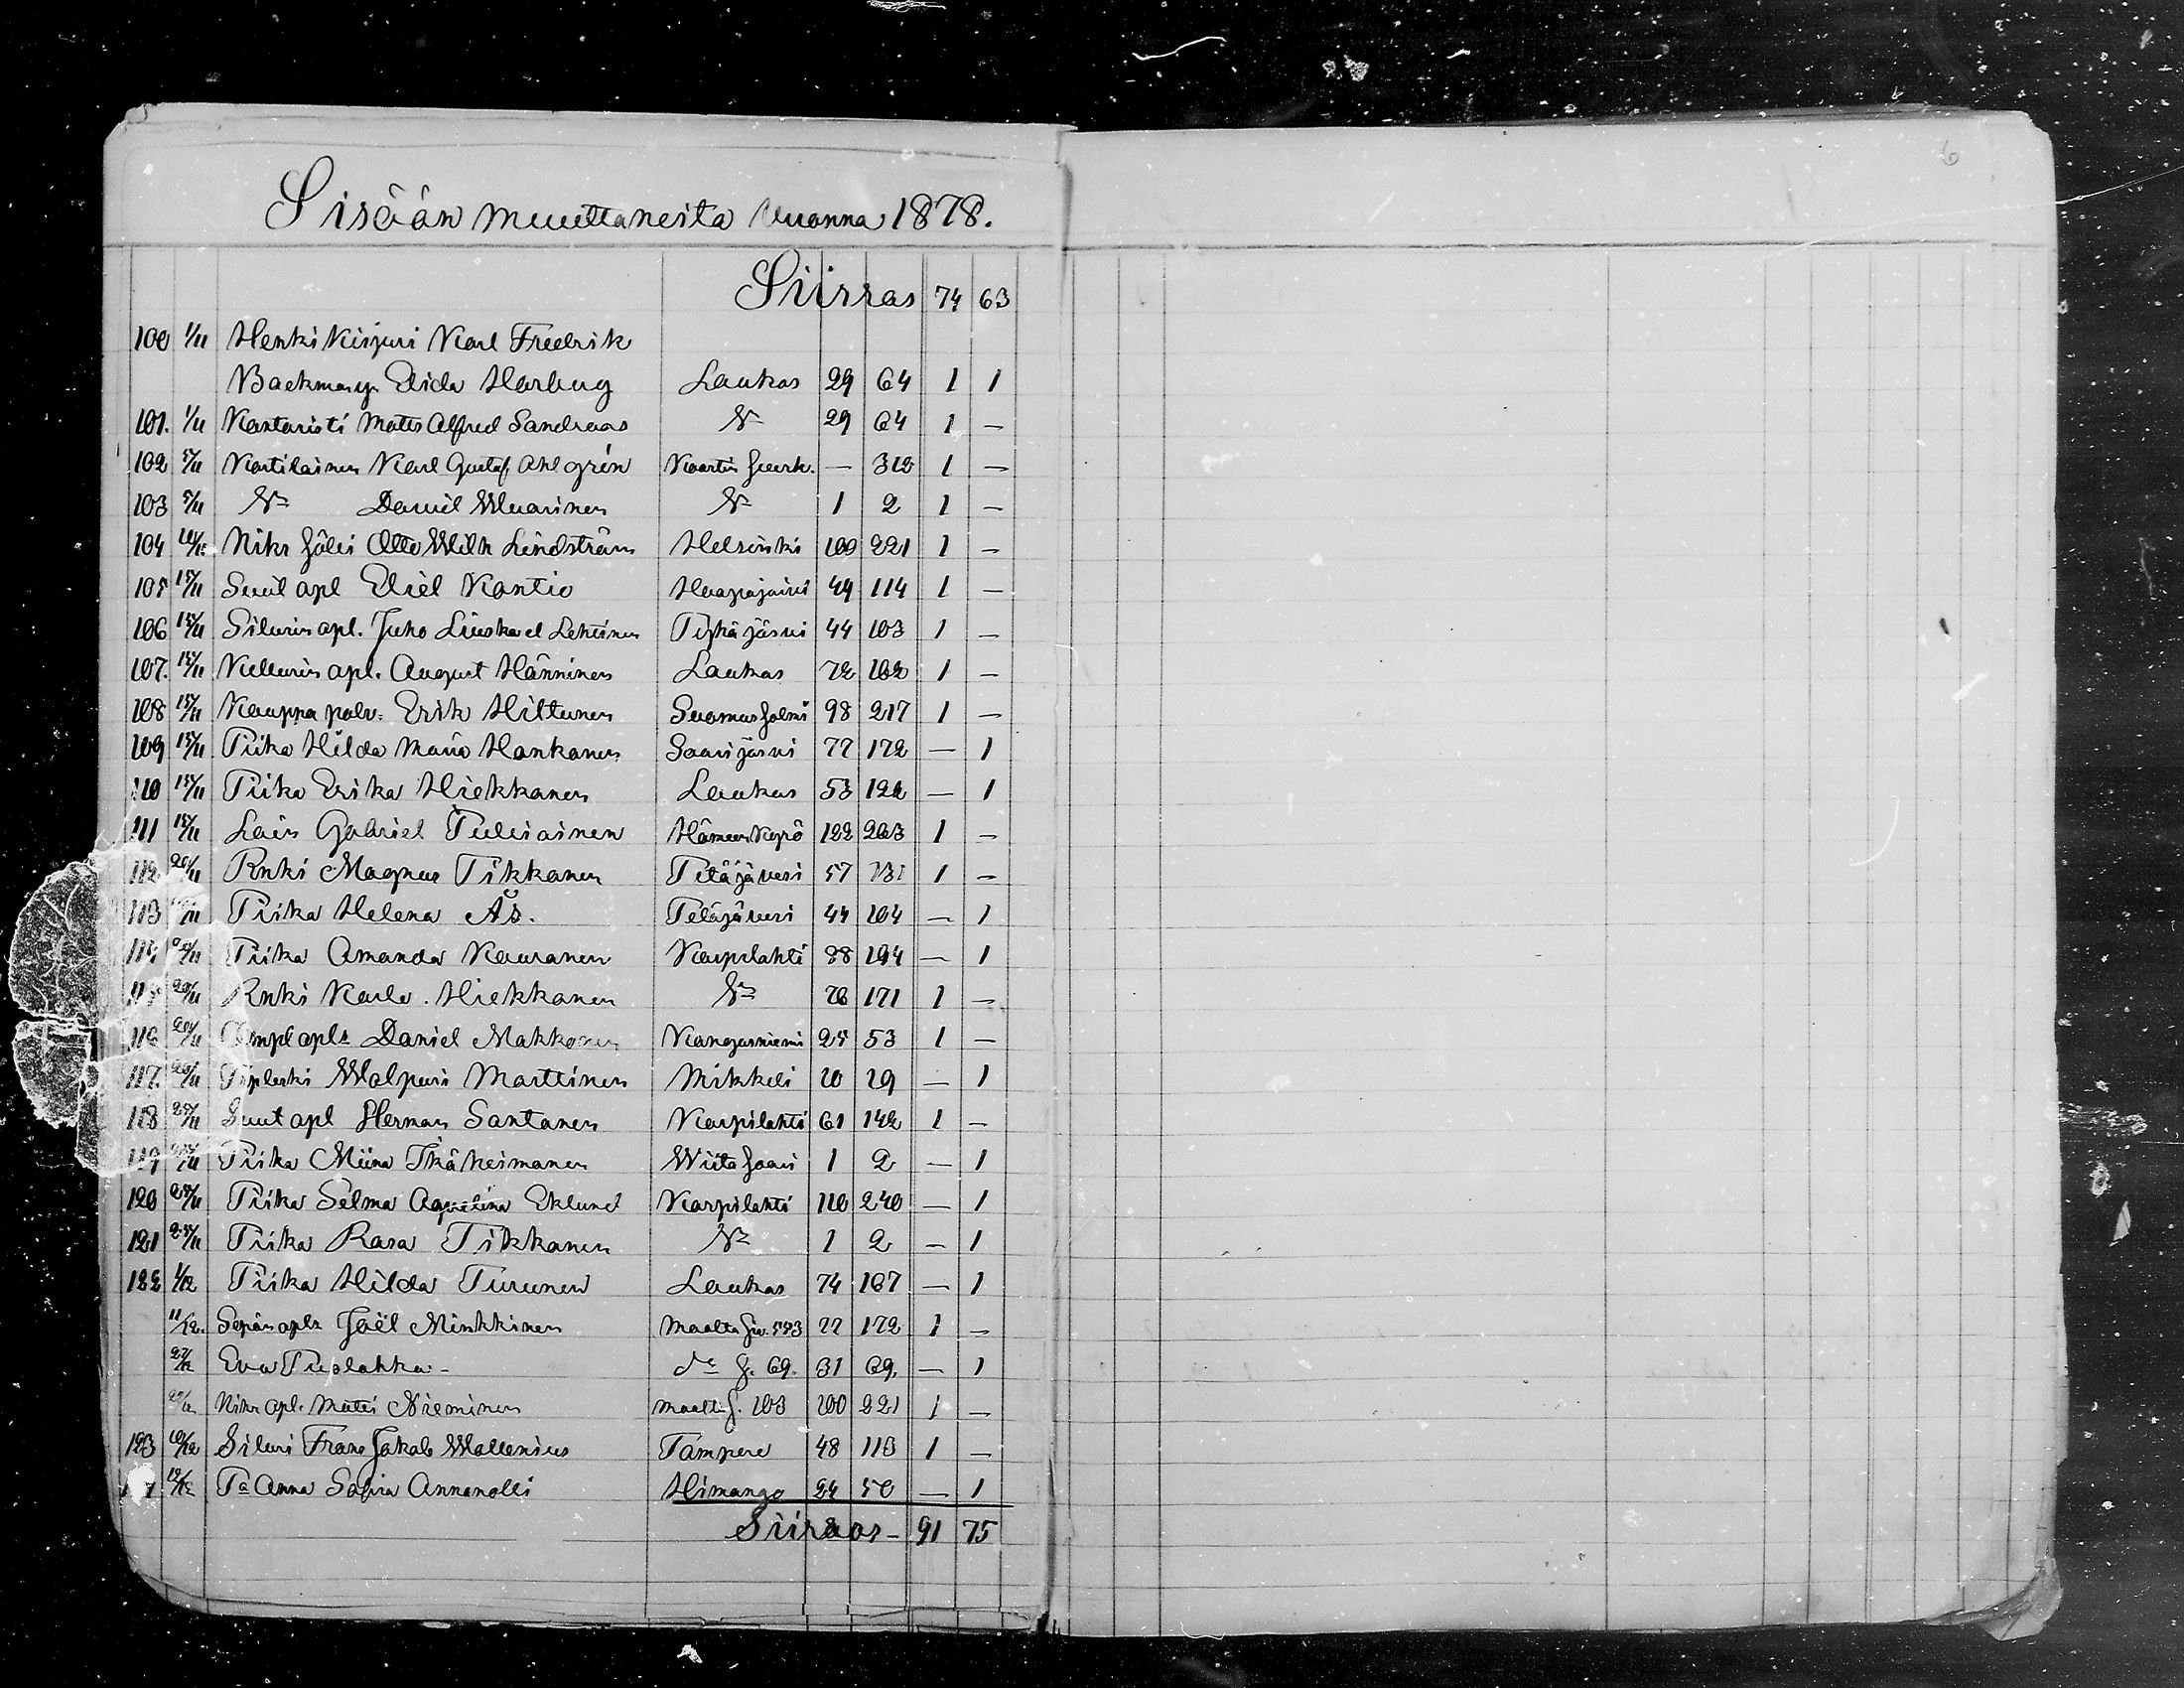 6
Sisään muuttaneita vuonna 1878.
Siirras 74 63
100 1/11 Henki Kirjuri Karl Fredrik
Backman Elida Laukas 29 64 1 1
101. 1/11 Kantoristi Matts Alfred Sandraas 29 64 1 —
102 5/11 Kartilainen Karl Gustaf Ahlgrén Kaartin — 312 1 —
103 5/11 Daniel Muarinen 1 2 1 —
104 Otto Wilh Lindström Helsinki 100 221 1 —
105 15/11 Suut apl Eliel Kantio Haapajärvi 49 114 1 —
106 15/11 Silurin apl. Juho Liuska el Lehtinen Pyhäjärvi 44 103 1 —
107. 15/11 apl. August Hänninen Laukas 72 162 1 —
108 15/11 Kauppa palv. Erik Hiltunen Suomusjalmi 98 217 1 —
109 15/11 Piika Hilda Maria Hankanen Saarijärvi 77 172 — 1
110 15/11 Piika Erika Hiekkanen Laukas 53 122 — 1
111 15/11 Gabriel Puliainen Hämeen Kyrö 122 263 1 —
112 20/11 Rnki Magnus Tikkanen Petäjävesi 57 131 1 —
113 Piika Helena Ås. Petäjävesi 44 104 — 1
114 Piika Amanda Kauranen Korpilahti 88 194 — 1
115 20/11 Rnki Karlo. Hiekkanen 76 171 1 —
116 20/11 apls Daniel Makkonen Kangasniemi 25 53 1 —
117. 20/11 Walpuri Marttinen Mikkeli 10 19 — 1
118 25/11 Suut apl Herman Santanen Korpilahti 61 142 1 —
119 Piika Miina Ikäheimonen Wiitasaari 1 2 — 1
120 25/11 Piika Selma Aqvelina Eklund Korpilahti 110 240 — 1
121 25/11 Piika Rasa Tikkanen 1 2 — 1
122 1/12 Piika Hilda Turunen Laukas 74 167 — 1
11/12. Sepän apls Joël Minkkinen Maalta 77 172 1 —
27/12 Eva Puplahka 69. 31 69. — 1
apl. Matti Nieminen Maalta 103 100 221 1 —
123 10/12 Siluri Frans Jakob Wallenius Tampere 48 113 1 —
12/12 Pa Anna Sofia Annanolli Himango 24 50 — 1
Siirras - 91 75